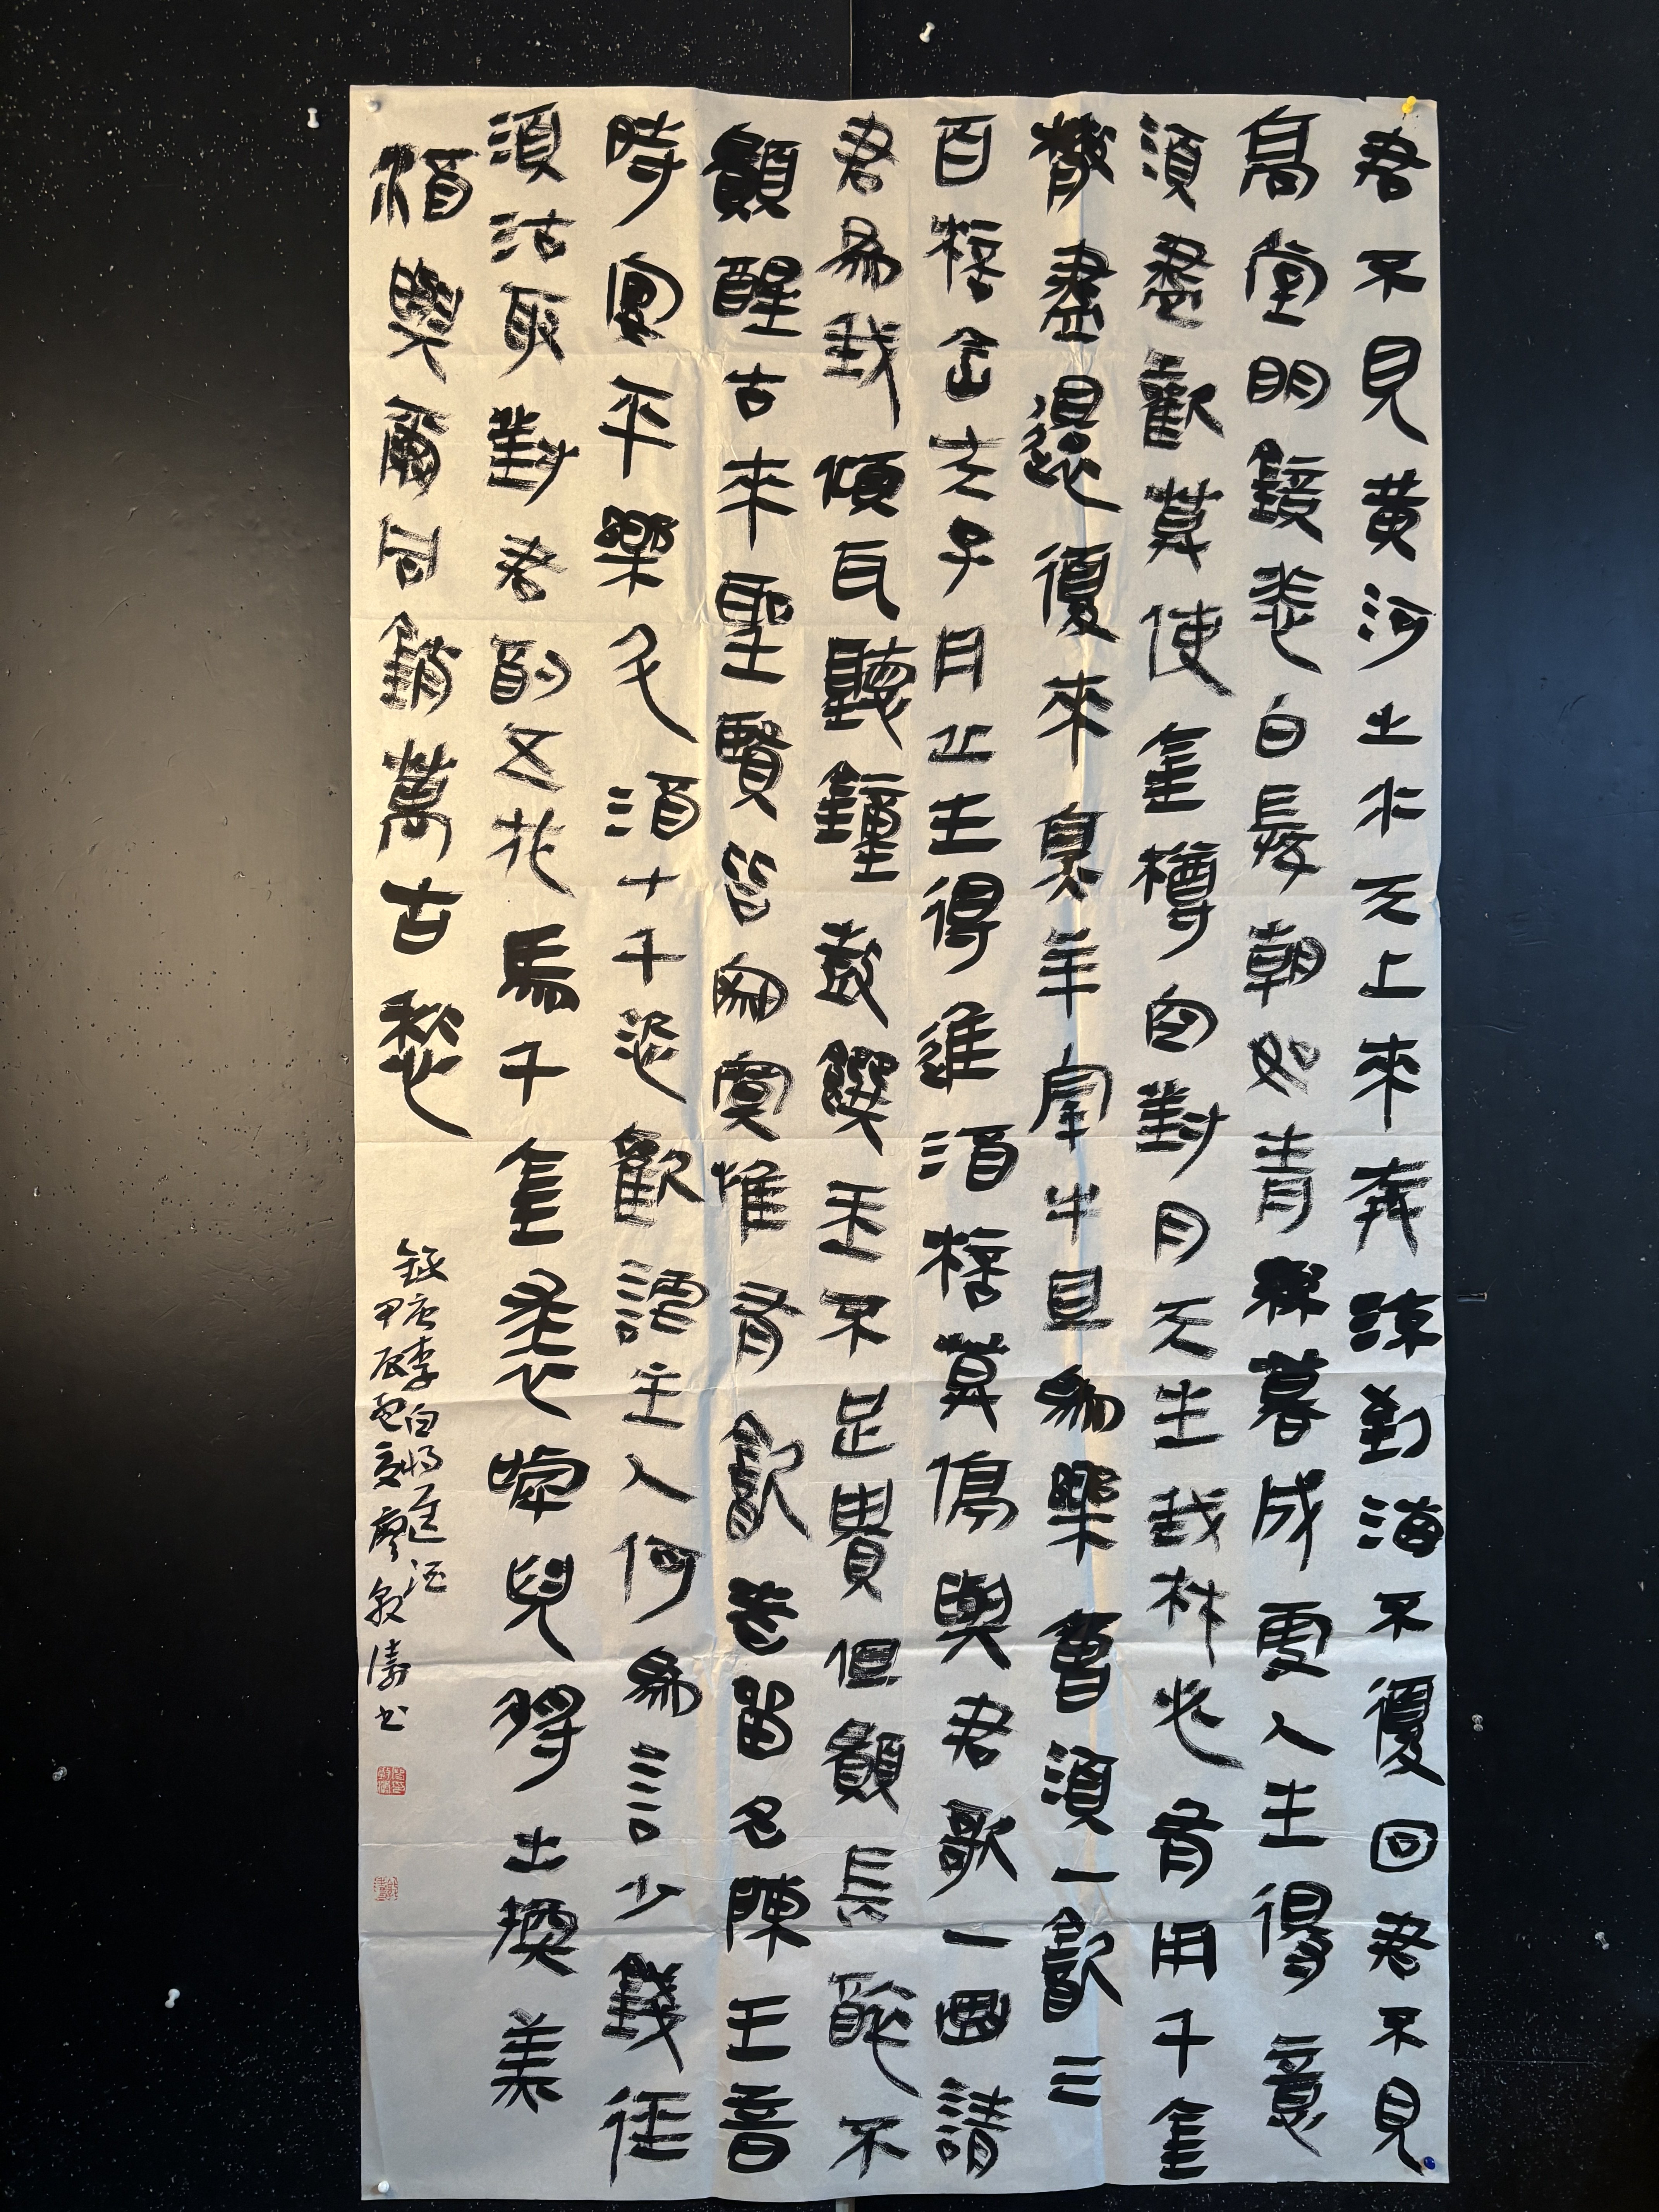 君不見黃河之水天上來奔流到海不復回君不見
高堂明鏡悲白髮朝如青絲暮成雪人生得意
須盡歡莫使金樽空對月天生我材必有用千金
散盡還復來烹羊宰牛且為樂會須一飲三
百杯岑夫子丹丘生將進酒杯莫停與君歌一曲請
君為我傾耳聽鐘鼓饌玉不足貴但願長醉不
願醒古來聖賢皆寂寞惟有飲者留名陳王昔
時宴平樂斗酒十千恣歡謔主人何為言少錢徑
須沽取對君酌五花馬千金裘呼兒將出換美
酒與爾同銷萬古愁
錄唐李白將進酒
甲辰夏廖濤書